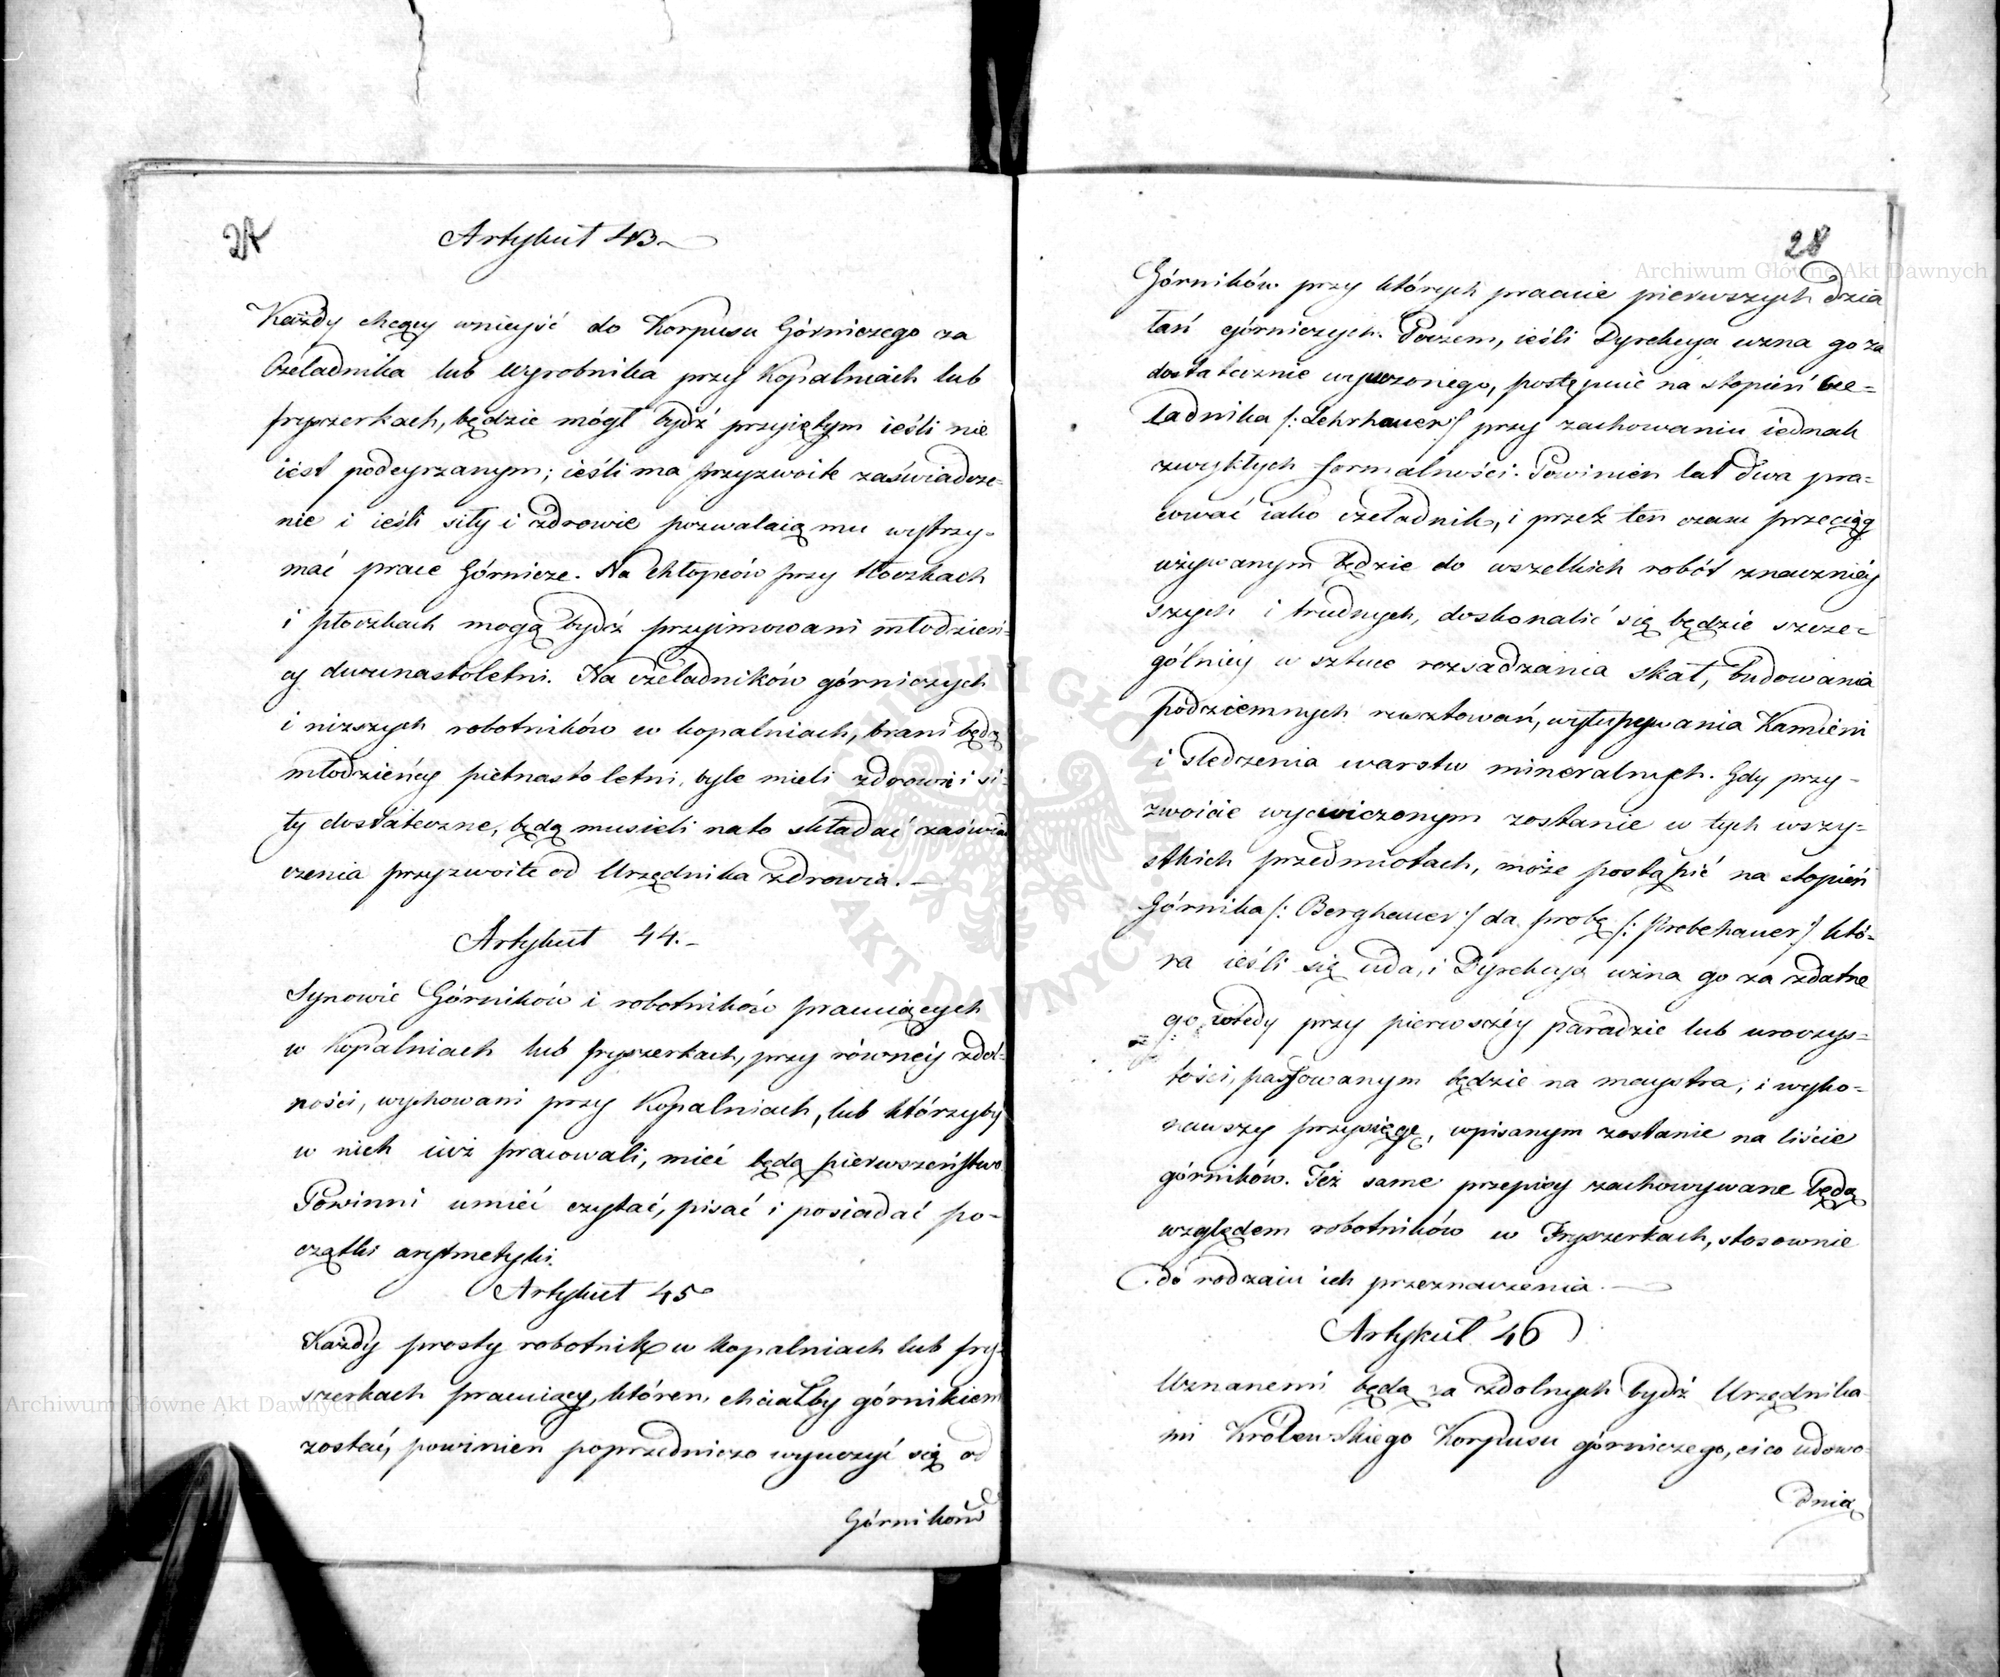 27
Artykuł 43
Każdy chcący wniyść do Korpusu Górniczego za
Czeladnika lub Wyrobnika przy Kopalniach lub
fryszerkach, będzie mógł bydź przyiętym ieśli nie
iest podeyrzanym; ieśli ma przyzwoite zaświadcze-
nie i ieśli siły i zdrowie pozwalaią mu wytrzy-
mać prace Górnicze. Na chłopców przy tłoczkach
i płoczkach mogą bydź przyimowani młodzień-
cy dwunastoletni. Na czeladników górniczych
i niższych robotników w kopalniach, brani będą
młodzieńcy piętnasto letni, byle mieli zdrowie i si-
ły dostateczne, będą musieli na to składać zaświad
czenia przyzwoite od Urzędnika zdrowia. —
Artykuł 44. –
Synowie Górników i robotników pracuiących
w Kopalniach lub fryszerkach, przy równéy zdol-
ności, wychowani przy Kopalniach, lub którzyby
w nich iuż pracowali, mieć będą pierwszeństwo.
Powinni umieć czytać, pisać i posiadać po-
czątki arytmetyki.
Artykuł 45
Każdy prosty robotnik w kopalniach lub fry-
szerkach pracuiący, któren chciałby górnikiem
zostać, powinien poprzedniczo wyuczyć się od
Górników
28
Górników przy których pracuie pierwszych dzia
łań górniczych. Poczem, ieśli Dyrekcya uzna go za
dostatecznie wyuczonego, postępuie na stopień Cze-
ladnika /: Lehrhauer :/ przy zachowaniu iednak
zwykłych formalności. Powinien lat dwa pra-
cować iako czeladnik, i przez ten czasu przeciąg
używanym będzie do wszelkich robót znaczniéy
szych i trudnych, doskonalić się będzie szcze-
gólniéy w sztuce rozsadzania skał, budowania
podziemnych rusztowań, wyłupywania Kamieni
i śledzenia warstw mineralnych. Gdy przy-
zwoicie wyćwiczonym zostanie w tych wszy-
stkich przedmiotach, może postąpić na stopień
Górnika /: Berghauer :/ da probę /: Probehauer :/ któ-
ra ieśli się uda, i Dyrekcya uzna go za zdatne
go wtedy przy pierwszéy paradzie lub uroczys-
tości, passowanym będzie na maystra, i wyko-
nawszy przysięgę, wpisanym zostanie na liście
górników. Też same przepisy zachowywane będą
względem robotników w Fryszerkach, stosownie
do rodzaiu ich przeznaczenia. —
Artykuł 46
Uznanemi będą za zdolnych bydź Urzędnika-
mi Królewskiego Korpusu górniczego, ci co udowo-
dnią
Archiwum Główne Akt Dawnych
Archiwum Główne Akt Dawnych
ARCHIWUM GŁÓWNE AKT DAWNYCH